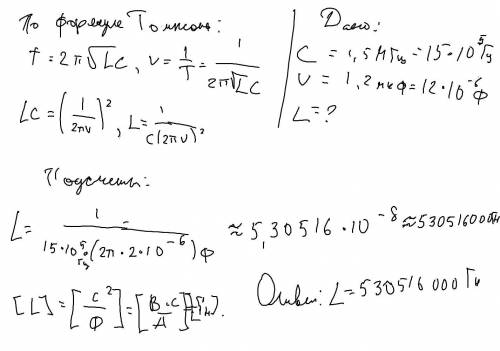 По формуле Томсона:
T = 2π√LC, ν = 1/T = 1/(2π√LC)
LC = (1/2πν)², L = 1/(C(2πν)²)
Дано:
C = 1,5 МГц = 15·10⁵ Гц
ν = 1,2 мкФ = 12·10⁻⁶ Ф
L = ?
Подсчеты:
L = 1/(15·10⁵ Гц (2π·2·10⁻⁶) Ф) ≈ 5,30516·10⁻⁸ ≈
[L] = [с²/Ф] = [В·с/А] = [Гн].
Ответ: L = 530516000 Гн